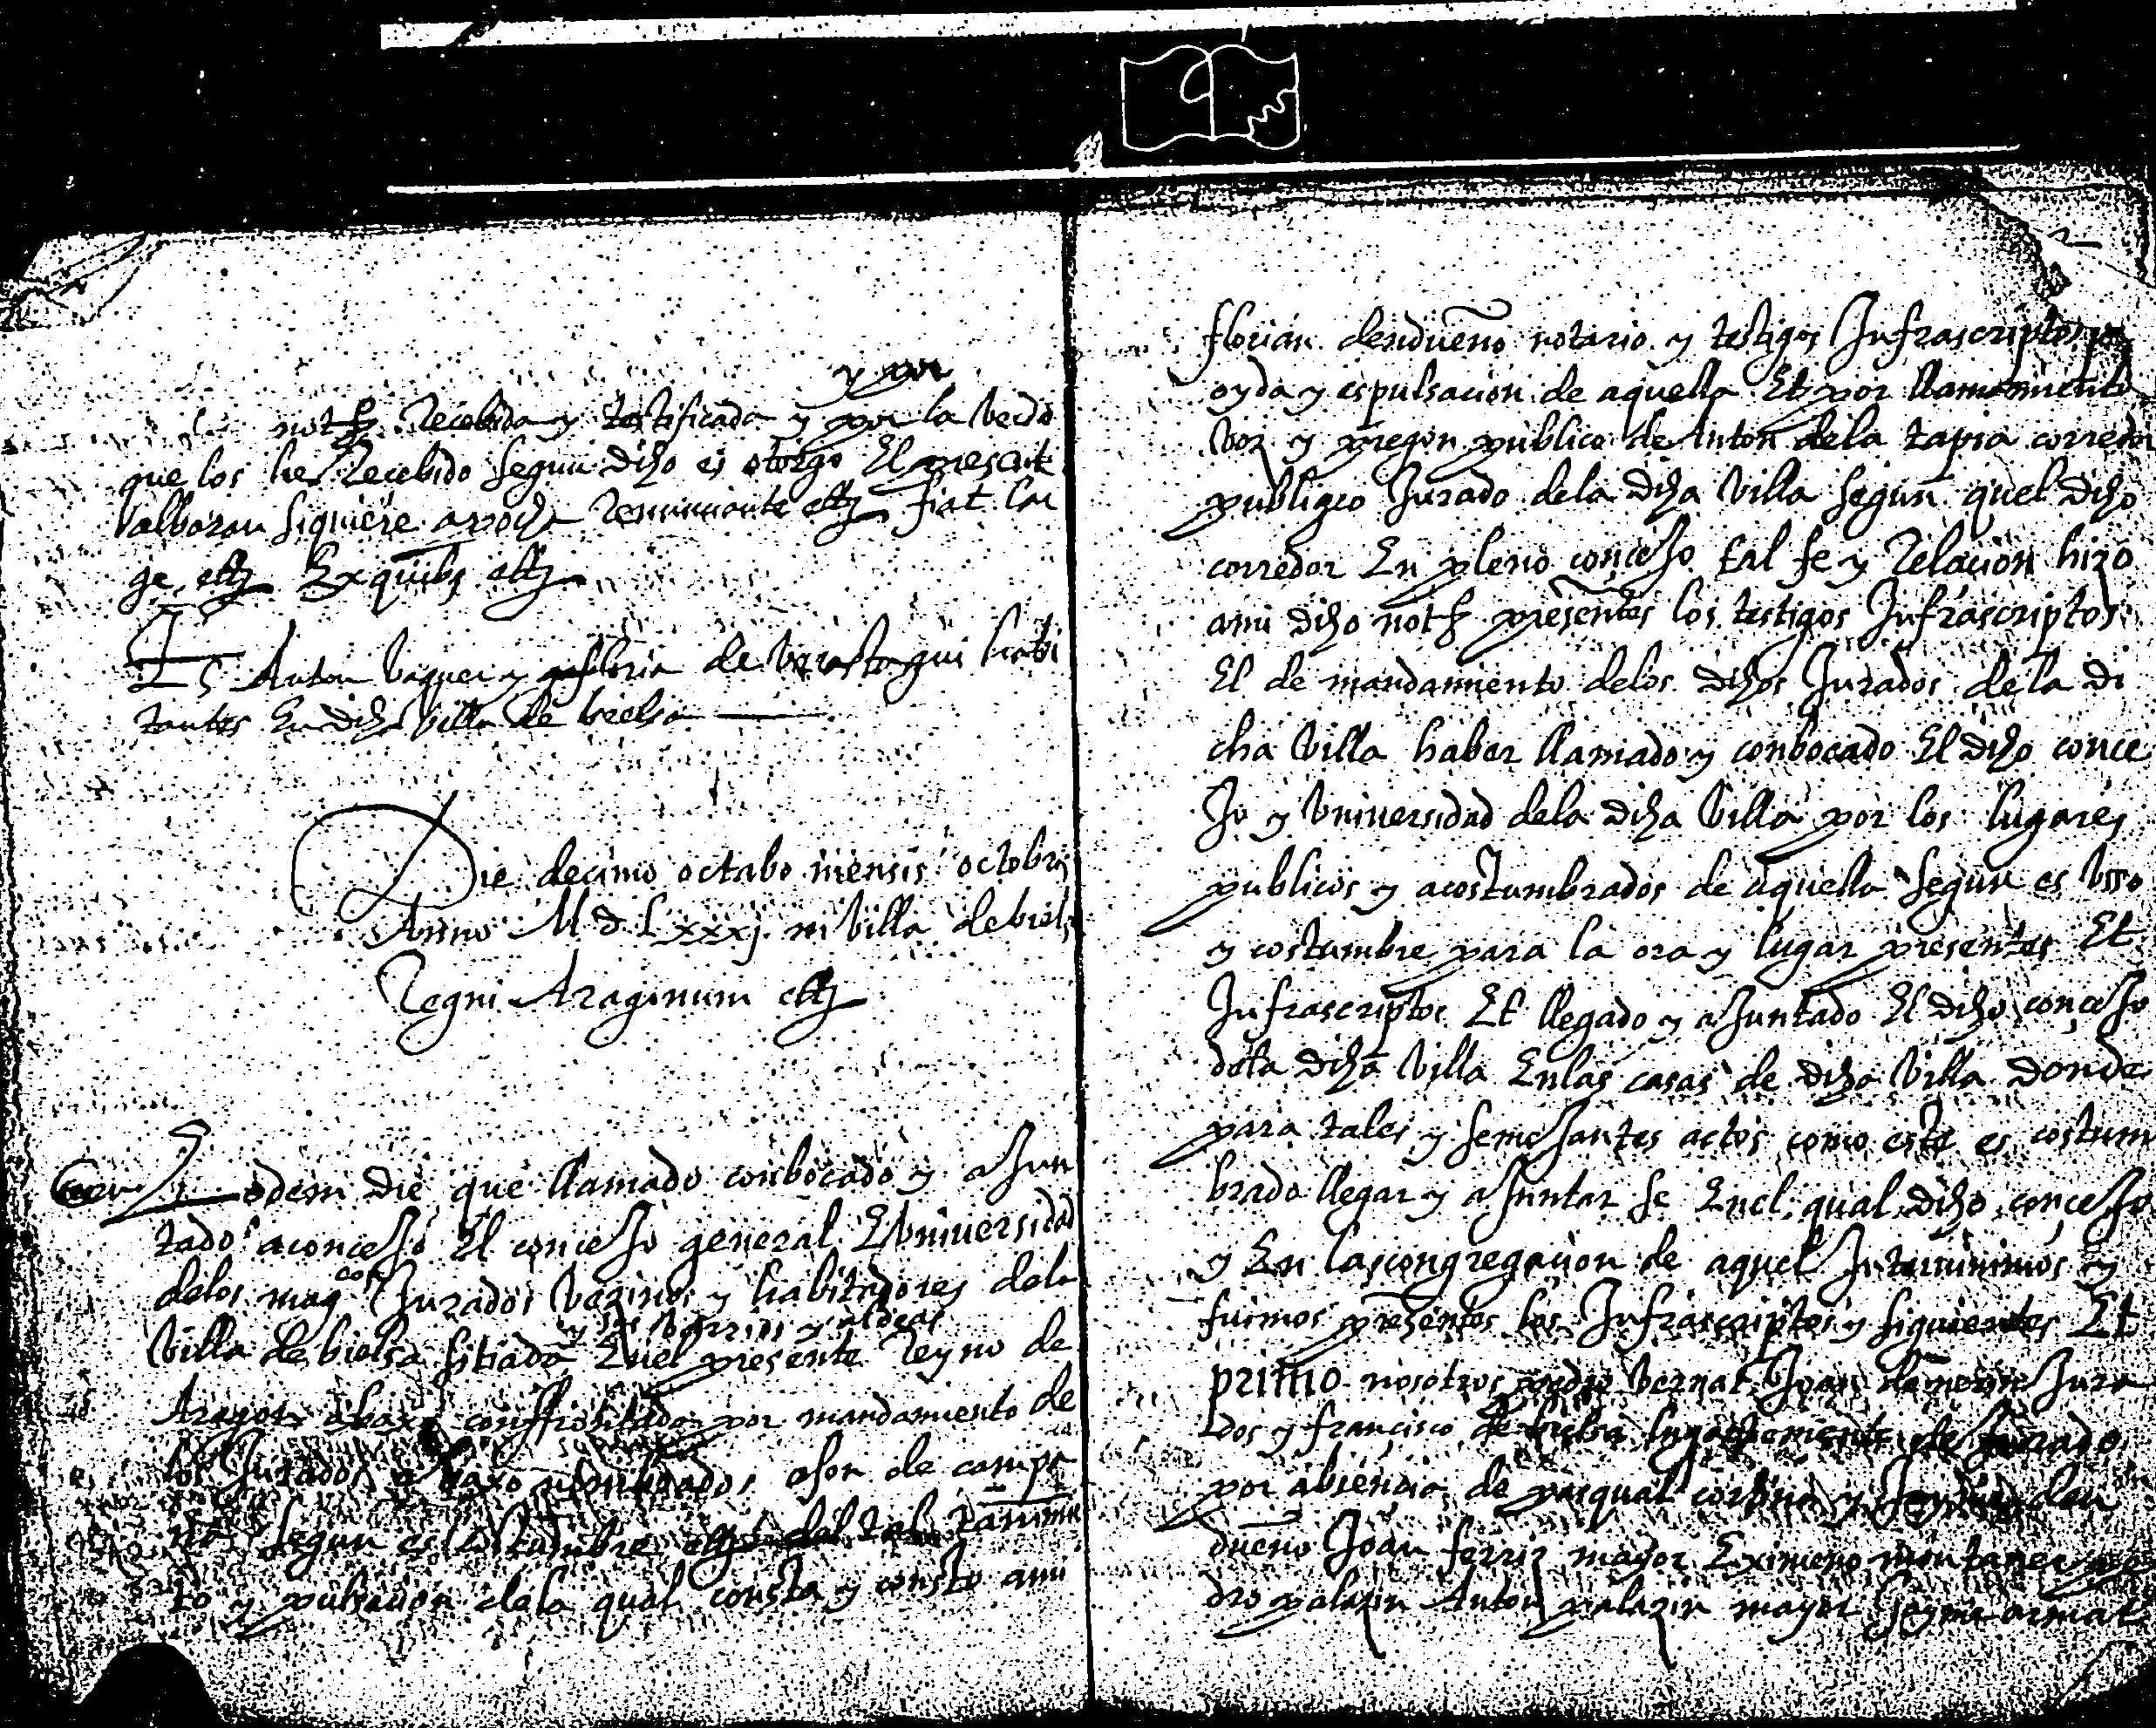 y por
not Recebida y testificada y por la verdad
que los he Recebido segun dicho es otorgo El present
albaran siquiere apocha Renunciante etc fiat lar
ge etc Ex quibus etc
Ts Anton Vaquer y de Verastegui habi
tantes En dicha Villa de bielsa
Die decimo octabo mensis octobris
Anno M d Lxxxj in Villa de biels
Regni Aragonum etc
Eodem die que llamado conbocado y aJun
tado a conceJo El conceJo general E Vniversidad
delos magcos Jurados Vezinos y habitadores dela
y sus barrios y aldeas
Villa de bielsa sitiada Enel presente Reyno de
Aragon abaxo conffrontada por mandamiento de
los Jurados abaxo nombrados a son de campa
na segun es costumbre del tal
to y pulsacion dela qual consta y consto a mi
florian dendueño notario y testigos Infrascriptos por
oyda y espulsacion de aquella Et por llamamiento
Voz y pregon publico de Anton dela tapia corredor
publigco Jurado dela dicha Villa segun quel dicho
corredor En pleno conceJo tal fe y Relacion hizo
a mi dicho not presentes los testigos Infrascriptos
El de mandamiento delos dichos Jurados de la di
cha Villa haber llamado y conbocado El dicho conce
Jo y Vniversidad dela dicha Villa por los lugares
publicos y acostumbrados de aquella segun es Vsso
y costumbre para la ora y lugar presentes Et
Infrascriptos Et llegado y aJuntado El dicho conçeJo
dela dicha Villa Enlas casas de dicha Villa donde
para tales y semeJantes actos como este es costum
brado llegar y aJuntar se Enel qual dicho conçeJo
y En la congregacion de aquel Interuinimos y
fuimos presentes los Infrascriptos y siguientes Et
primo nosotros pedro Bernat Joan Jura
dos y francisco de bielsa lugartheniente de Jurado
por absencia de pasqual den
dueño Joan ferrir mayor Eximeno montaner pe
dro palazin Anton palazin mayor